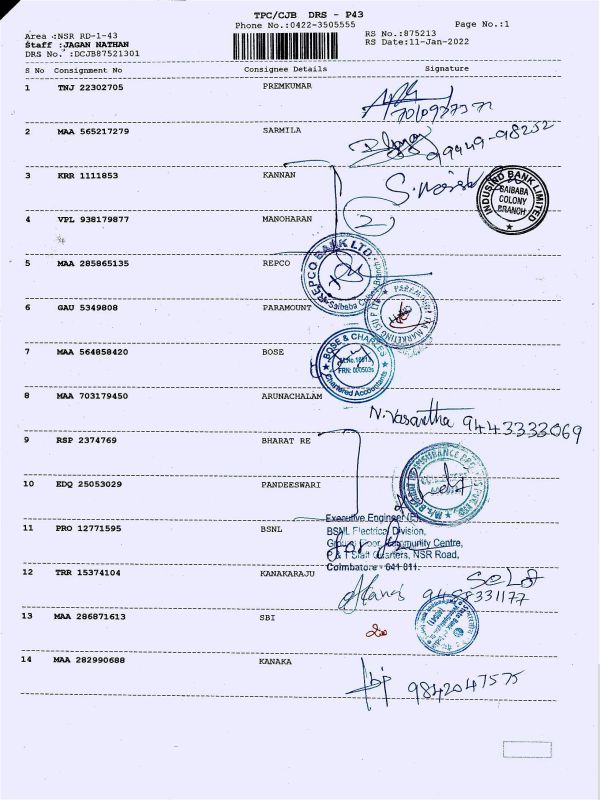 TPC/CJB DRS - P43
Phone No.:0422-3505555
Page No.:1
Area :NSR RD-1-43
RS No.:875213
Staff :JAGAN NATHAN
RS Date:11-Jan-2022
DRS No. :DCJB87521301
S No Consignment No Consignee Details Signature
1 TNJ 22302705 PREMKUMAR
2 MAA 565217279 SARMILA
99449-98252
3 KRR 1111853 KANNAN
INDUSIND BANK LIMITED
SAIBABA
COLONY
BRANCH
4 VPL 938179877 MANOHARAN
2
5 MAA 285865135 REPCO
REPCO BANK LTD.
Saibaba Colony Branch
6 GAU 5349808 PARAMOUNT
7 MAA 564858420 BOSE
BOSE & CHARLES
Chartered Accountants
8 MAA 703179450 ARUNACHALAM
N. Vasantha 9443333069
9 RSP 2374769 BHARAT RE
10 EDQ 25053029 PANDEESWARI
Executive Engineer (E),
11 PRO 12771595 BSNL
BSNL Electrical Division,
Ground Floor, Community Centre,
P & T Staff Quarters, NSR Road,
Coimbatore - 641 011.
12 TRR 15374104 KANAKARAJU
9498331177
13 MAA 286871613 SBI
14 MAA 282990688 KANAKA
9842047575